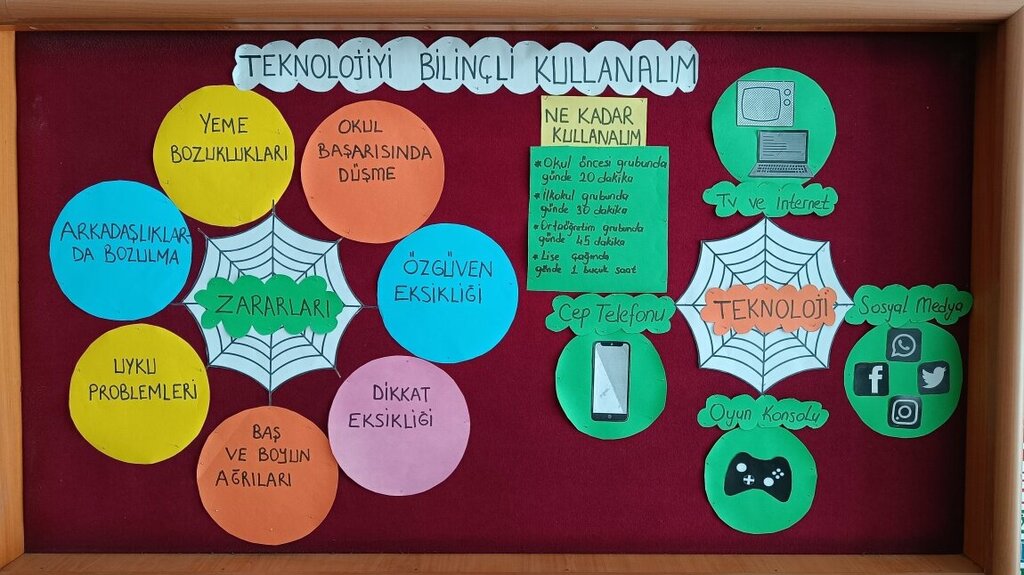 TEKNOLOJİYİ BİLİNÇLİ KULLANALIM
YEME
BOZUKLUKLARI
OKUL
BAŞARISINDA
DÜŞME
ARKADAŞLIKLAR-
DA BOZULMA
ÖZGÜVEN
EKSİKLİĞİ
ZARARLARI
UYKU
PROBLEMLERİ
DİKKAT
EKSİKLİĞİ
BAŞ
VE BOYUN
AĞRILARI
NE KADAR
KULLANALIM
* Okul öncesi grubunda
günde 20 dakika
* İlkokul grubunda
günde 30 dakika
* Ortaöğretim grubunda
günde 45 dakika
* Lise çağında
günde 1 buçuk saat
Tv ve İnternet
Cep Telefonu
TEKNOLOJİ
Sosyal Medya
Oyun Konsolu